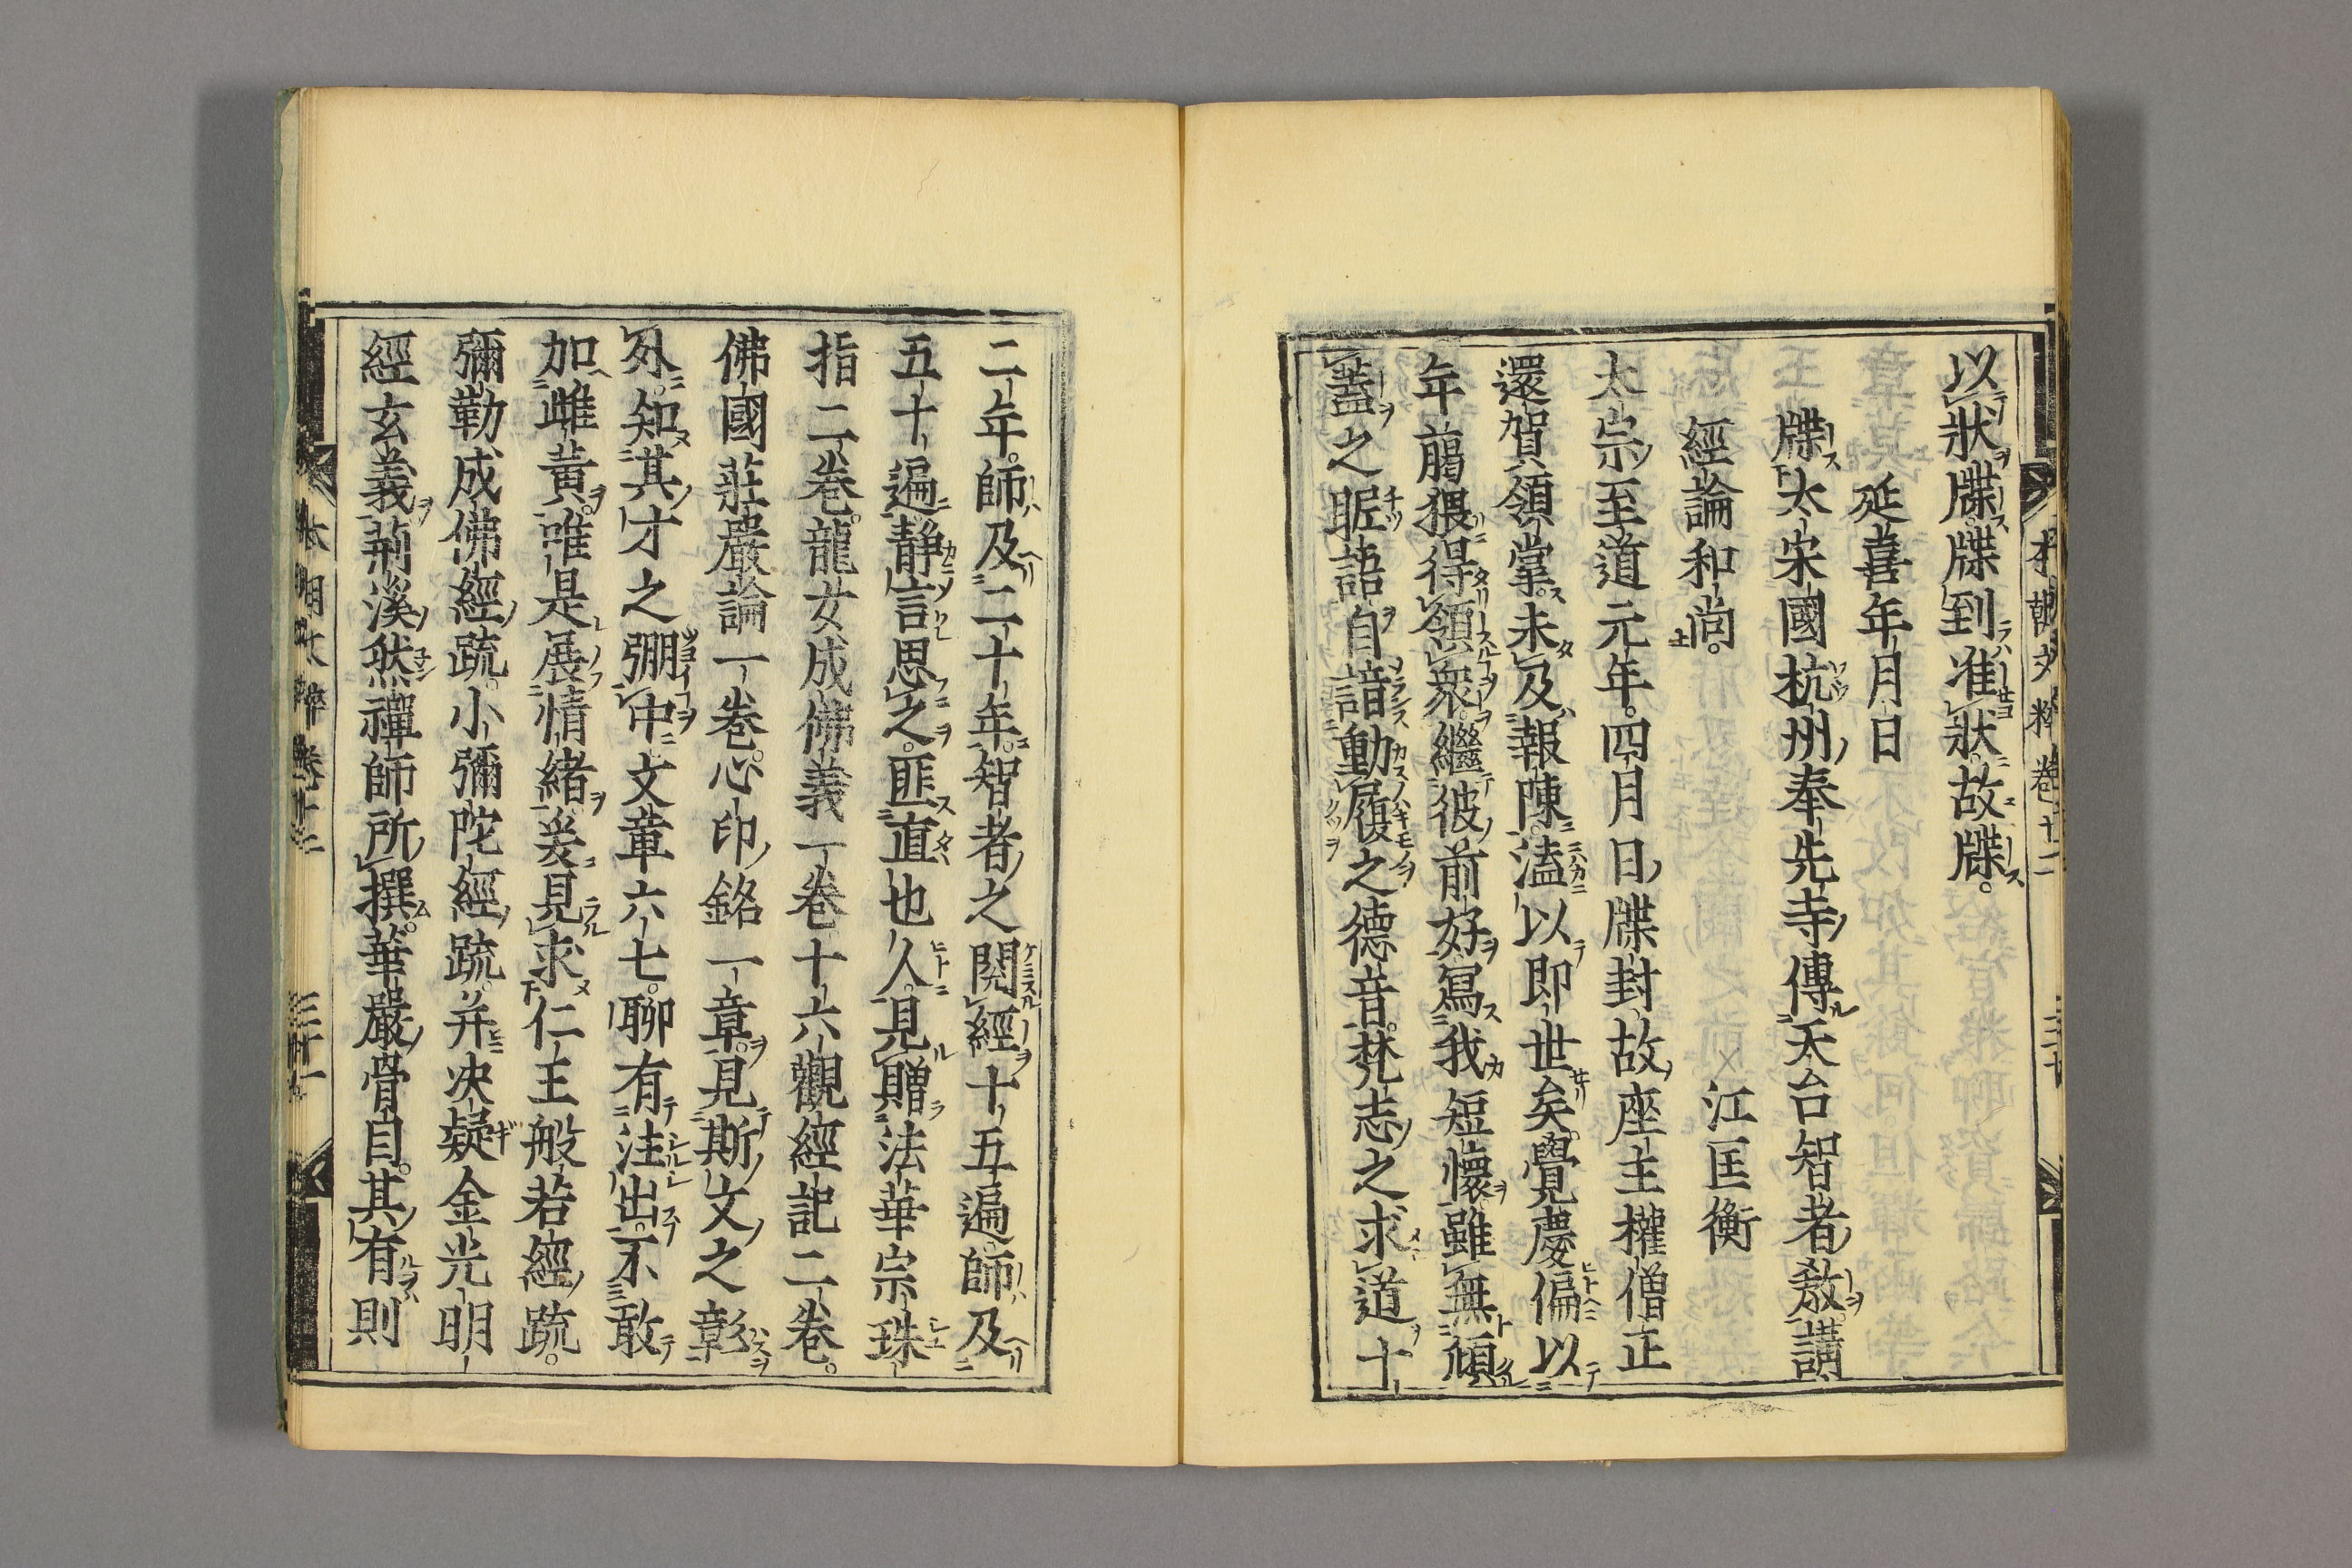 以狀牒牒到准狀故牒。
延喜年月日
牒太宋國杭州奉先寺傳天台智者敎講
經論和尚。
江匡衡
太宗至道元年四月日牒封故座主權僧正
還賀領掌未及報陳溘以即世矣覺慶偏以
年﨟猥得領衆繼彼前好寫我短懷雖無傾
蓋之昵語自諳動履之德音梵志之求道十
本朝文粹卷十二
三十
二年師及二十年智者之閱經十五遍師及
五十遍靜言思之匪直也人見贈法華宗珠
指二卷龍女成佛義一卷十六觀經記二卷。
佛國莊嚴論一卷心印銘一章見斯文之彰
外知其才之弸中文章六七聊有注出不敢
加雌黃唯是展情緒爰見求仁王般若經疏。
彌勒成佛經疏小彌陀經疏并決疑金光明
經玄義荊溪然禪師所撰華嚴骨目其有則
本朝文粹卷十二
三十一